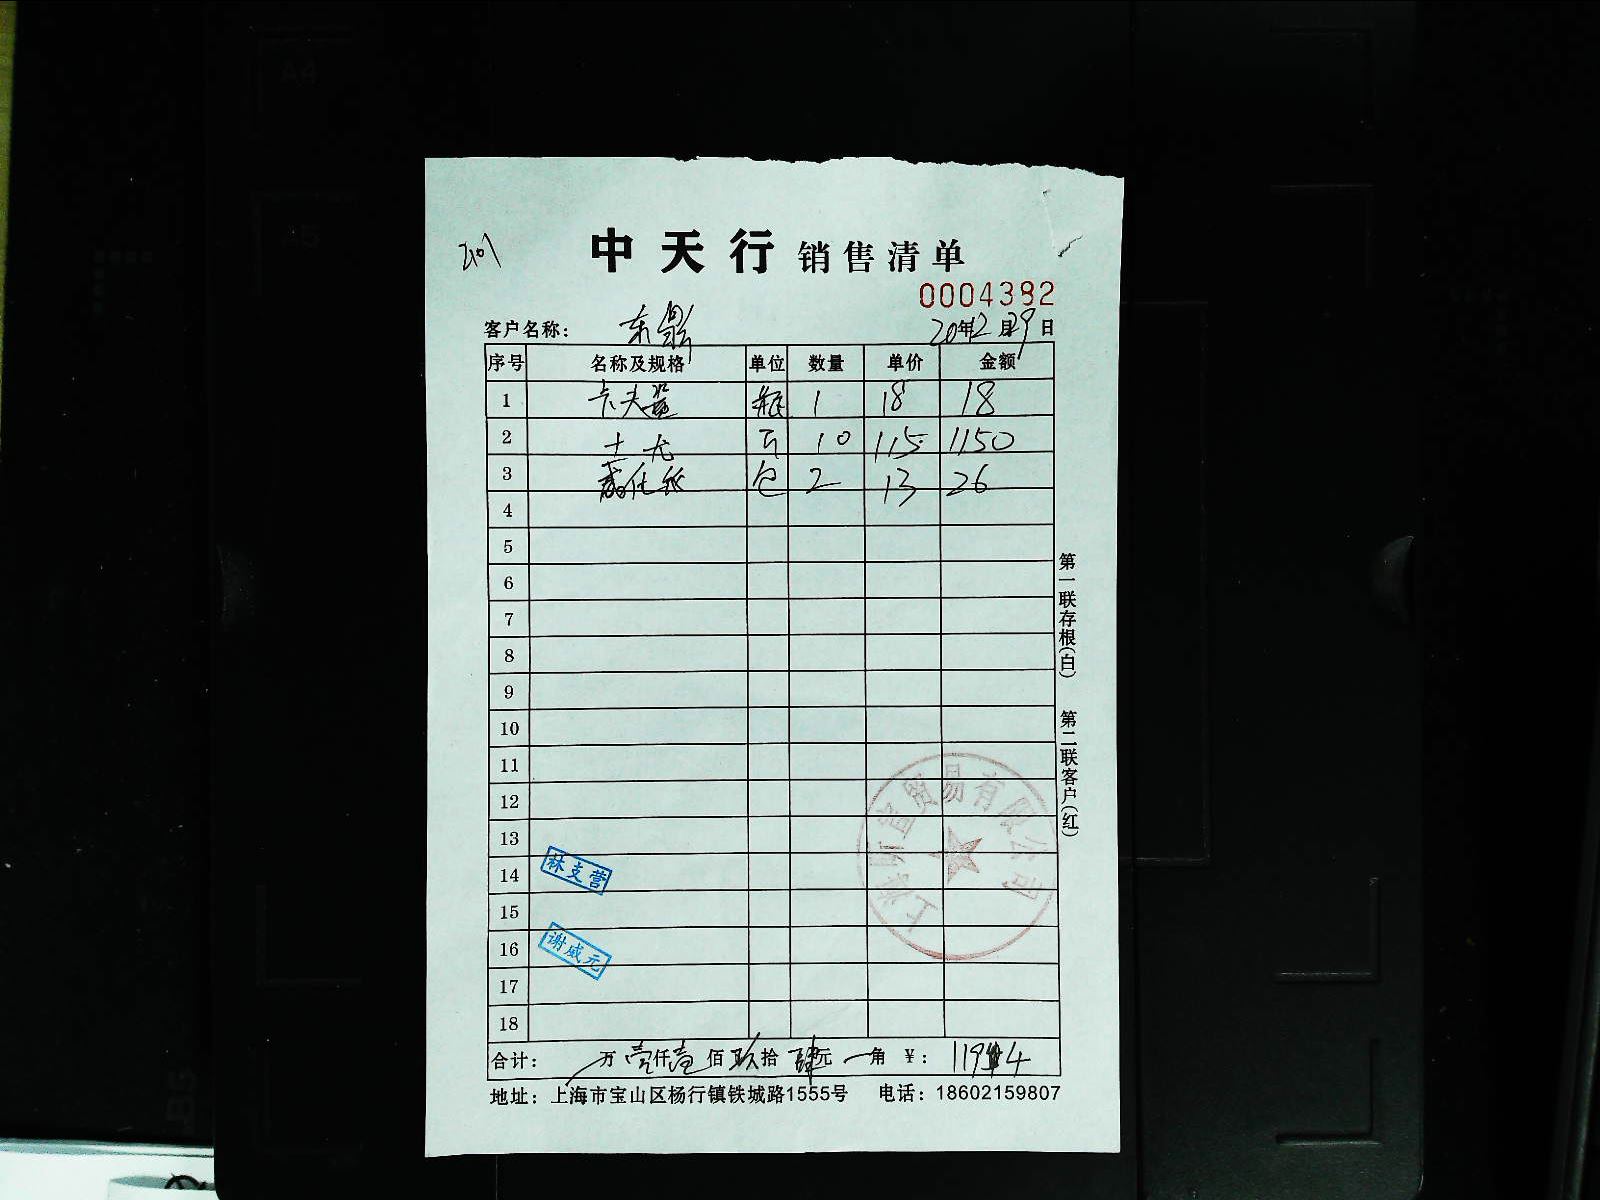 中天行 销售清单
0004392
客户名称： 东鼎 20年12月29日
序号 名称及规格 单位 数量 单价 金额
1 卡夫 瓶 1 18 18
2 10 115 1150
3 包 2 13 26
4
5
6
7
8
9
10
11
12
13
14
15
16
17
18
第一联存根(白) 第二联客户(红)
林支营
谢威元
贸易有限公司
合计： 万壹仟壹佰玖拾肆元 角 ￥：1194
地址：上海市宝山区杨行镇铁城路1555号 电话：18602159807